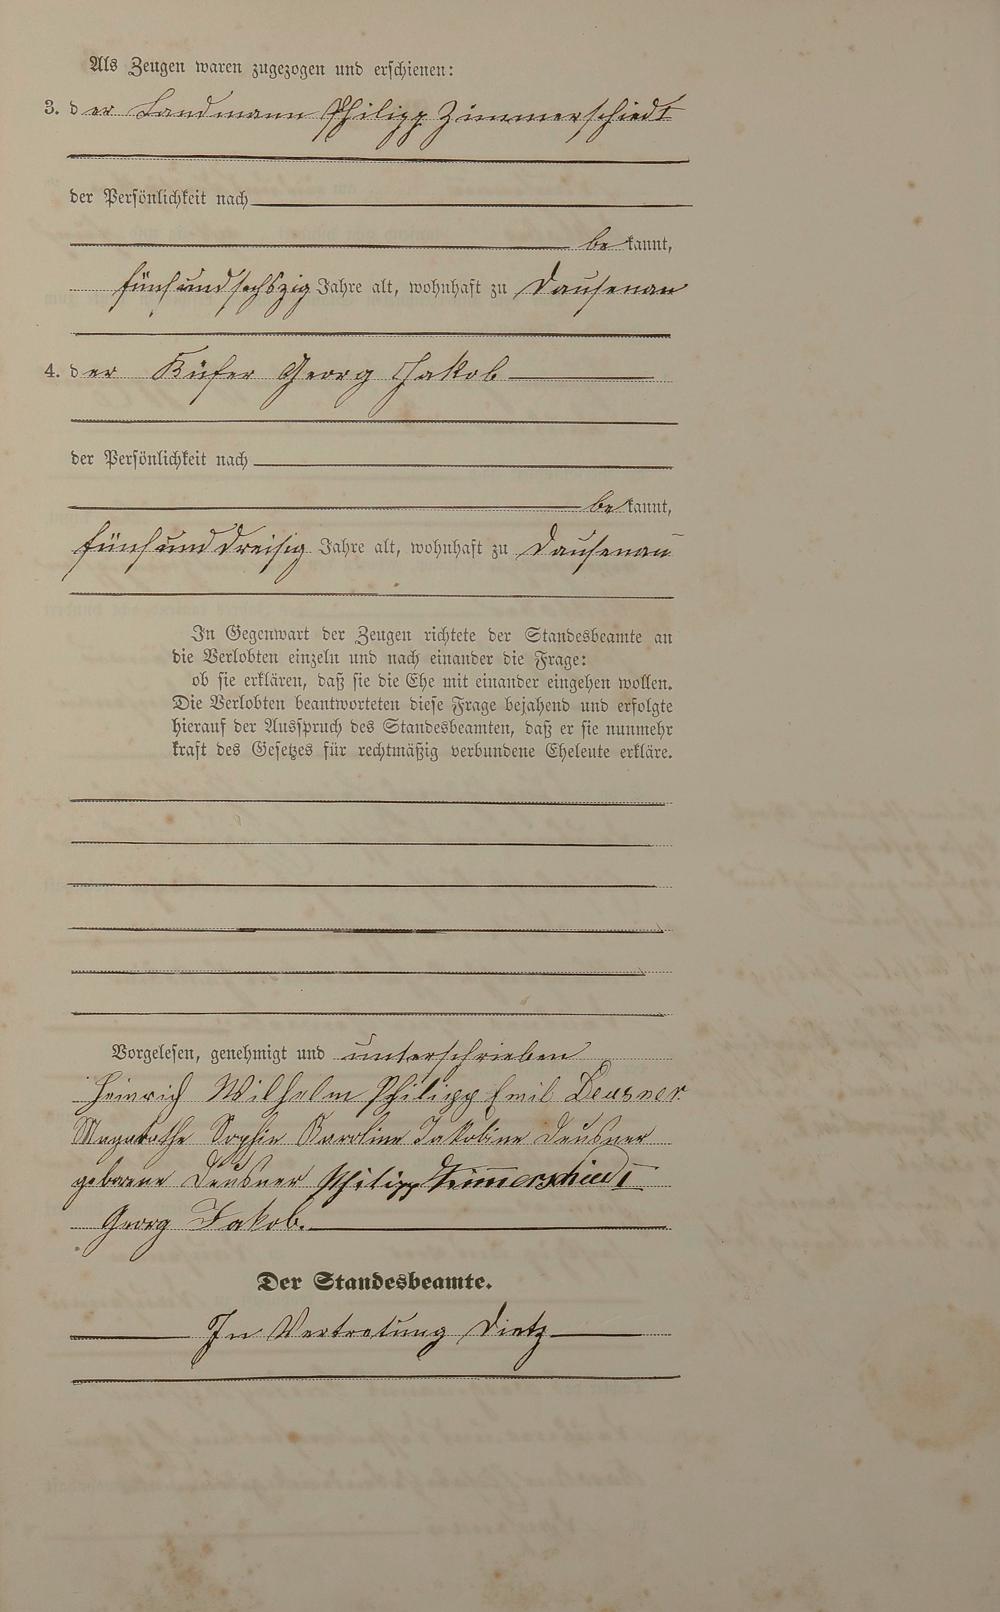 Als Zeugen waren zugezogen und erschienen:
3. der Landmann Philipp Zimmerschiedt
der Persönlichkeit nach
bekannt,
fünfundsechszig Jahre alt, wohnhaft zu Dausenau
4. der Küfer Georg Jakob
der Persönlichkeit nach
bekannt,
fünfunddreisig Jahre alt, wohnhaft zu Dausenau
In Gegenwart der Zeugen richtete der Standesbeamte an
die Verlobten einzeln und nach einander die Frage:
ob sie erklären, daß sie die Ehe mit einander eingehen wollen.
Die Verlobten beantworteten diese Frage bejahend und erfolgte
hierauf der Ausspruch des Standesbeamten, daß er sie nunmehr
kraft des Gesetzes für rechtmäßig verbundene Eheleute erkläre.
Vorgelesen, genehmigt und unterschrieben
Heinrich Wilhelm Philipp Emil Deusner
Sophie Karoline Jakobine Deusner
geborene Deusner Philipp Zimmerschiedt
Georg Jakob.
Der Standesbeamte.
In Vertretung Dietz